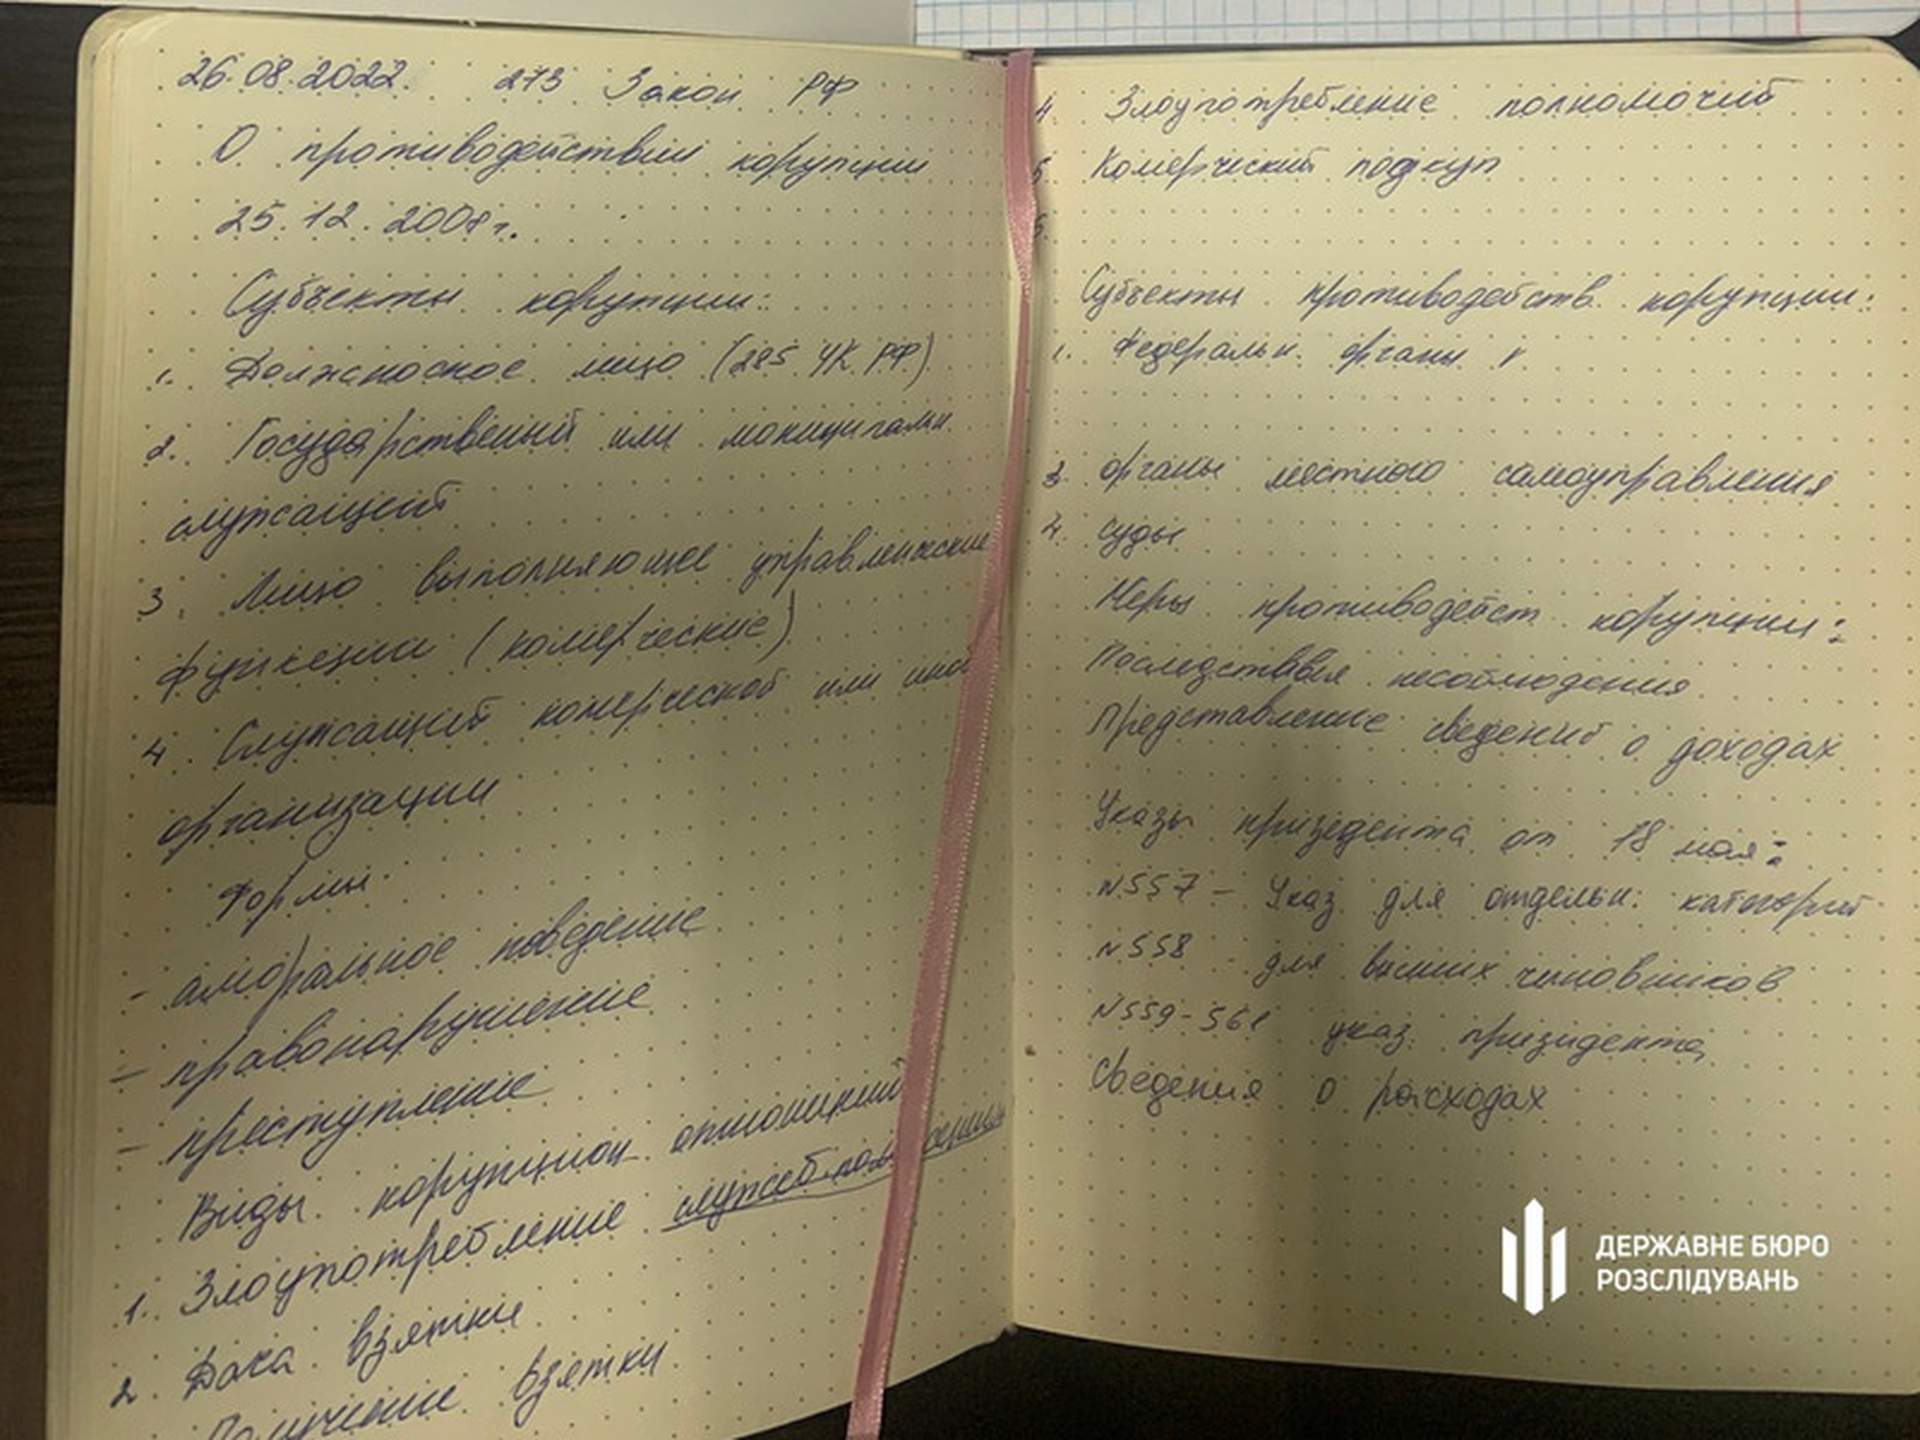 26.08.2022. 273 Закон РФ
О противодействии корупции
25.12.2008г.
Субъекты корупции:
1. Должносное лицо (285 УК РФ)
2. Государственый или мониципальн.
служсащий
3. Лицо выполняющее управленские
функции (комерческие)
4. Служсащий комерческой или иной
организации
Формы
- аморальное поведение
- правонарушение
- преступление
Виды корупцион отношений
1. Злоупотребление служеб.
2. Дача взятки
Получение взятки
4. Злоупотребление полномочий
5. Комерческий подкуп
6.
Субъекты противодейств. корупции:
1. Федеральн. органы
3. органы местного самоуправления
4. суды
Меры противодейст корупции:
Последствия несоблюдения
Представление сведений о доходах
Указы призедента от 18 мая:
N557 - Указ для отдельн. категорий
N558 - для высших чиновников
N559-561 указ призидента
Сведения о расходах
ДЕРЖАВНЕ БЮРО
РОЗСЛІДУВАНЬ